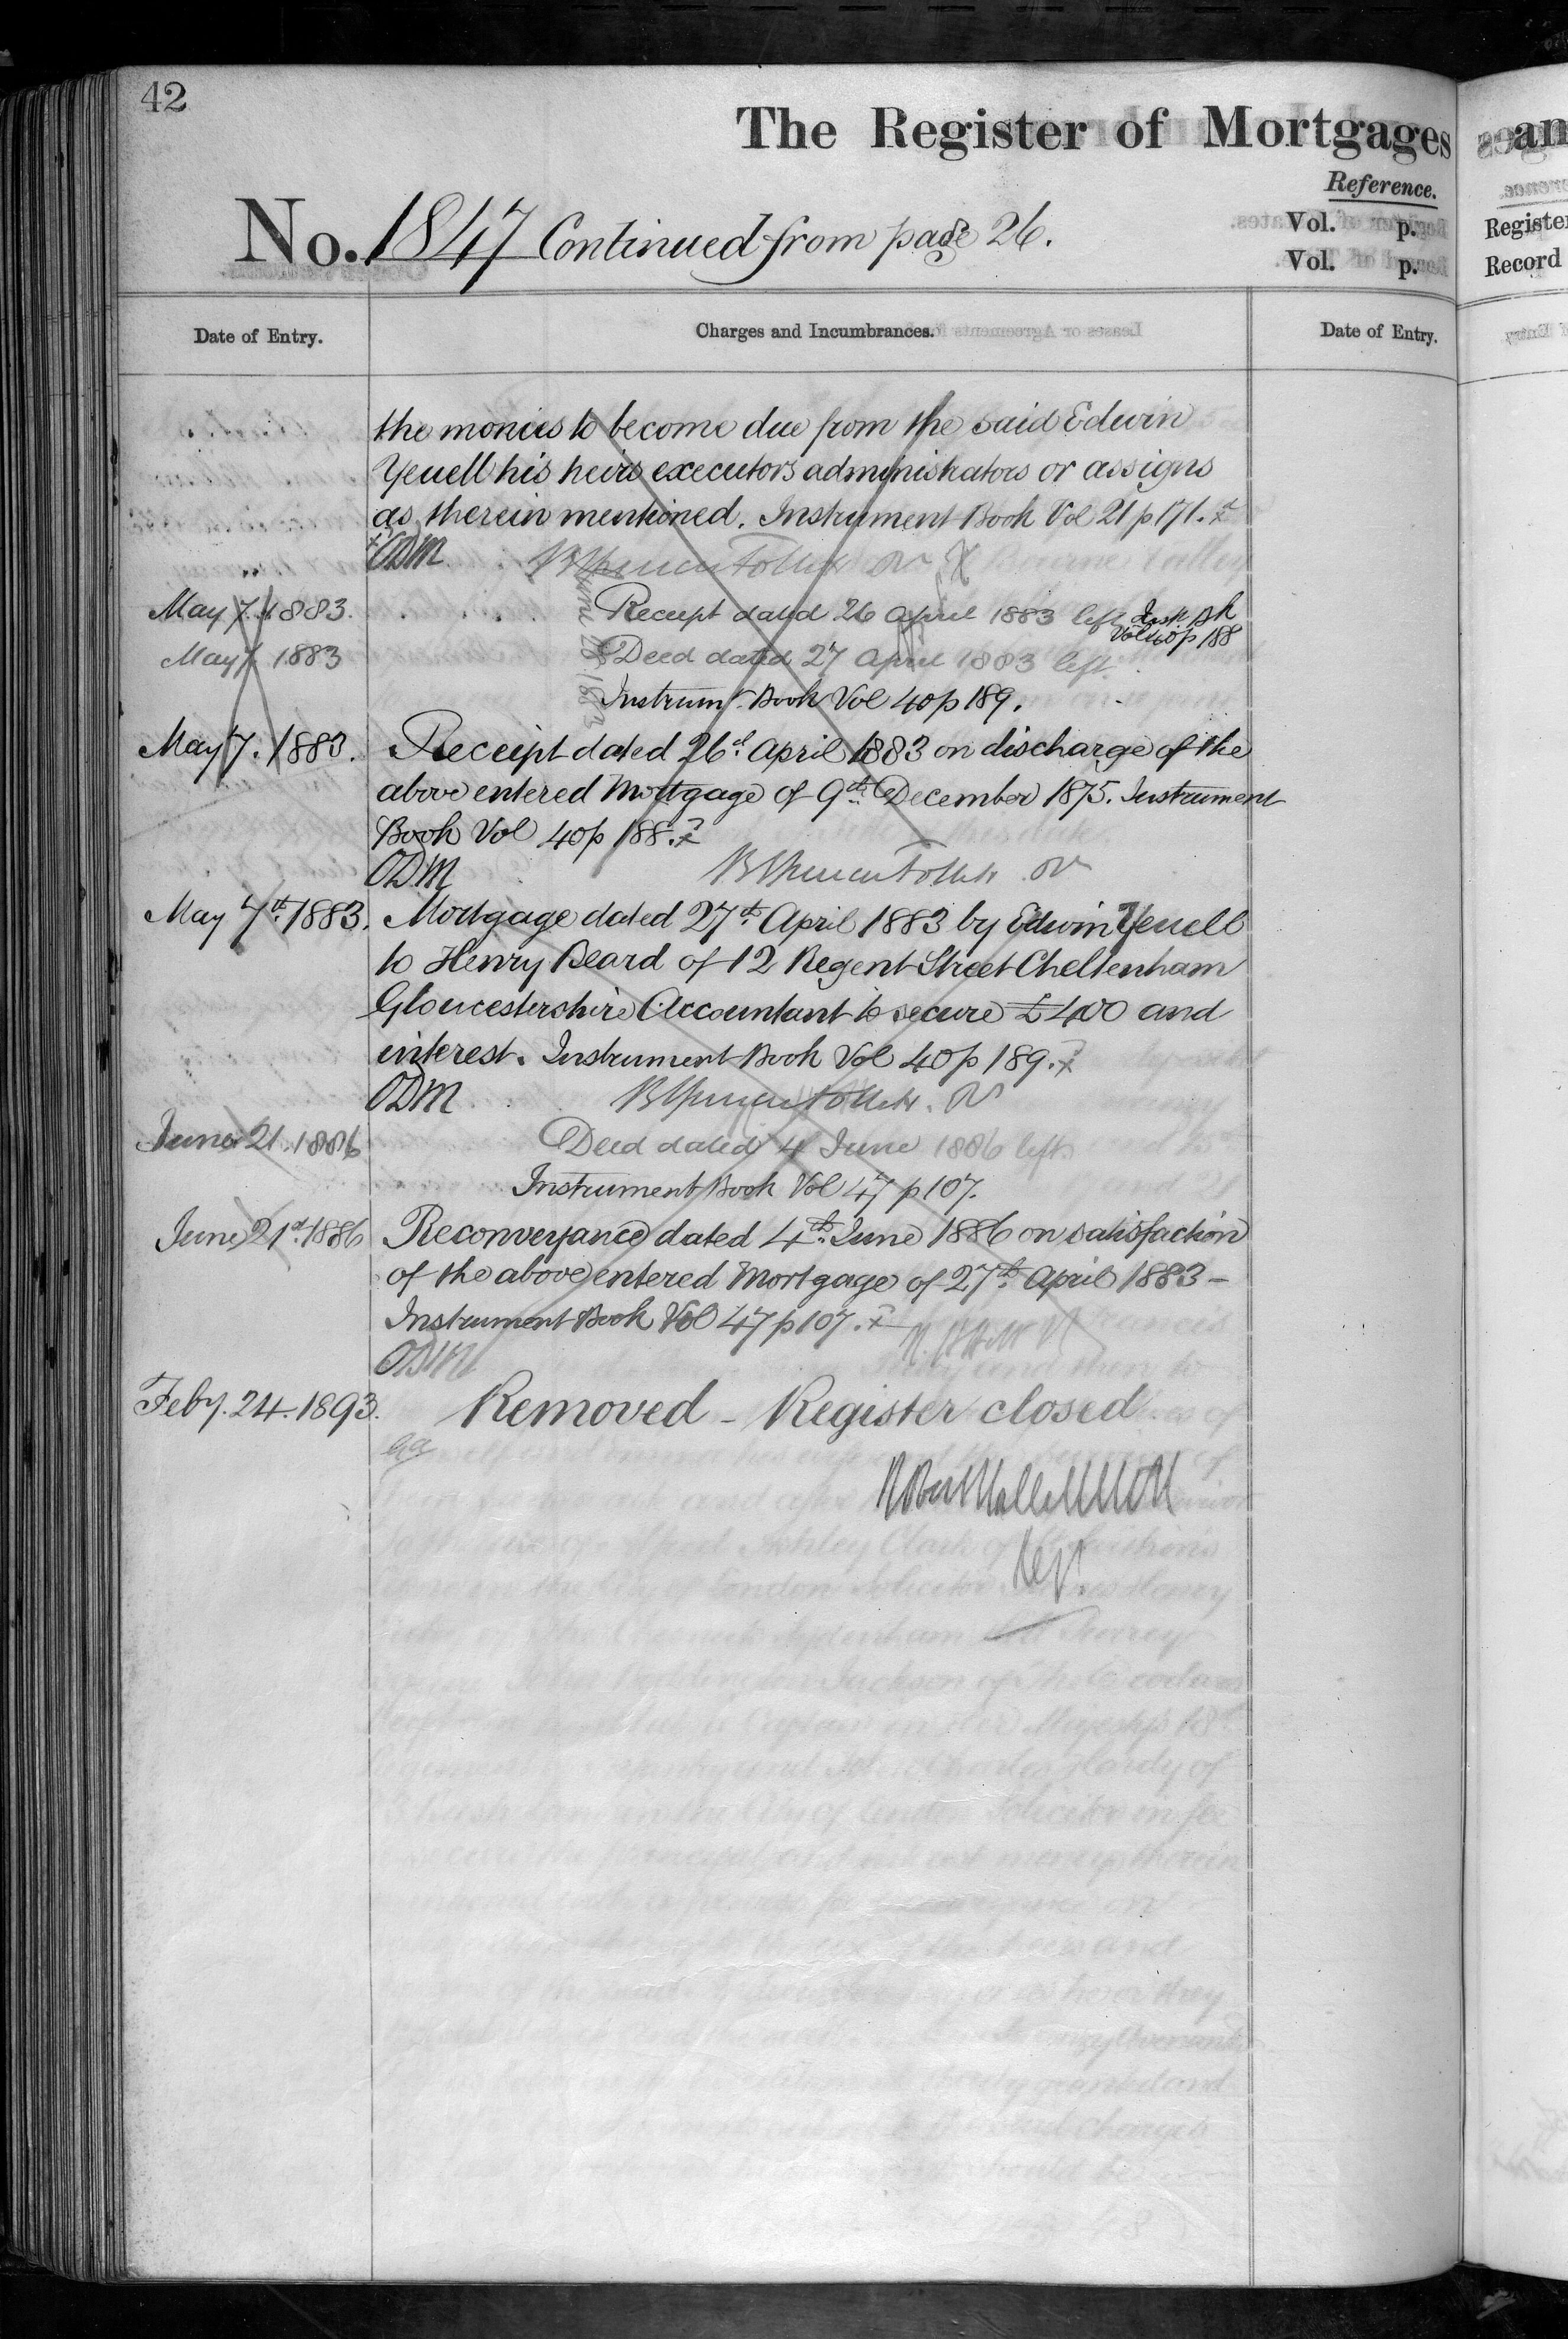 42
The Register of Mortgages
Reference.
No. 1847 Continued from page 26.
Vol. p.
Vol. p.
Date of Entry.
Charges and Incumbrances.
Date of Entry.
the monies to become due from the said Edwin
Yeuell his heirs executors administrators or assigns
as therein mentioned. Instrument Book Vol 21 p 171.
ODM
May 7. 1883. Receipt dated 26 April 1883 left
Vol 40 p 188
May 7 1883 Deed dated 27 April 1883 left.
Instrumt. Book Vol 40 p 189.
May 7. 1883. Receipt dated 26th April 1883 on discharge of the
above entered Mortgage of 9th December 1875. Instrument
Book Vol 40 p 188.
ODM
May 7th 1883. Mortgage dated 27th April 1883 by Edwin Yeuell
to Henry Beard of 12 Regent Street Cheltenham
Gloucestershire Accountant to secure £400 and
interest. Instrument Book Vol 40 p 189.
ODM
June 21. 1886 Deed dated 4 June 1886 left
Instrument Book Vol 47 p 107.
June 21st 1886 Reconveyance dated 4th June 1886 on satisfaction
of the above entered Mortgage of 27th April 1883 –
Instrument Book Vol 47 p 107.
ODM
Feby. 24. 1893. Removed – Register closed.
Register
Record